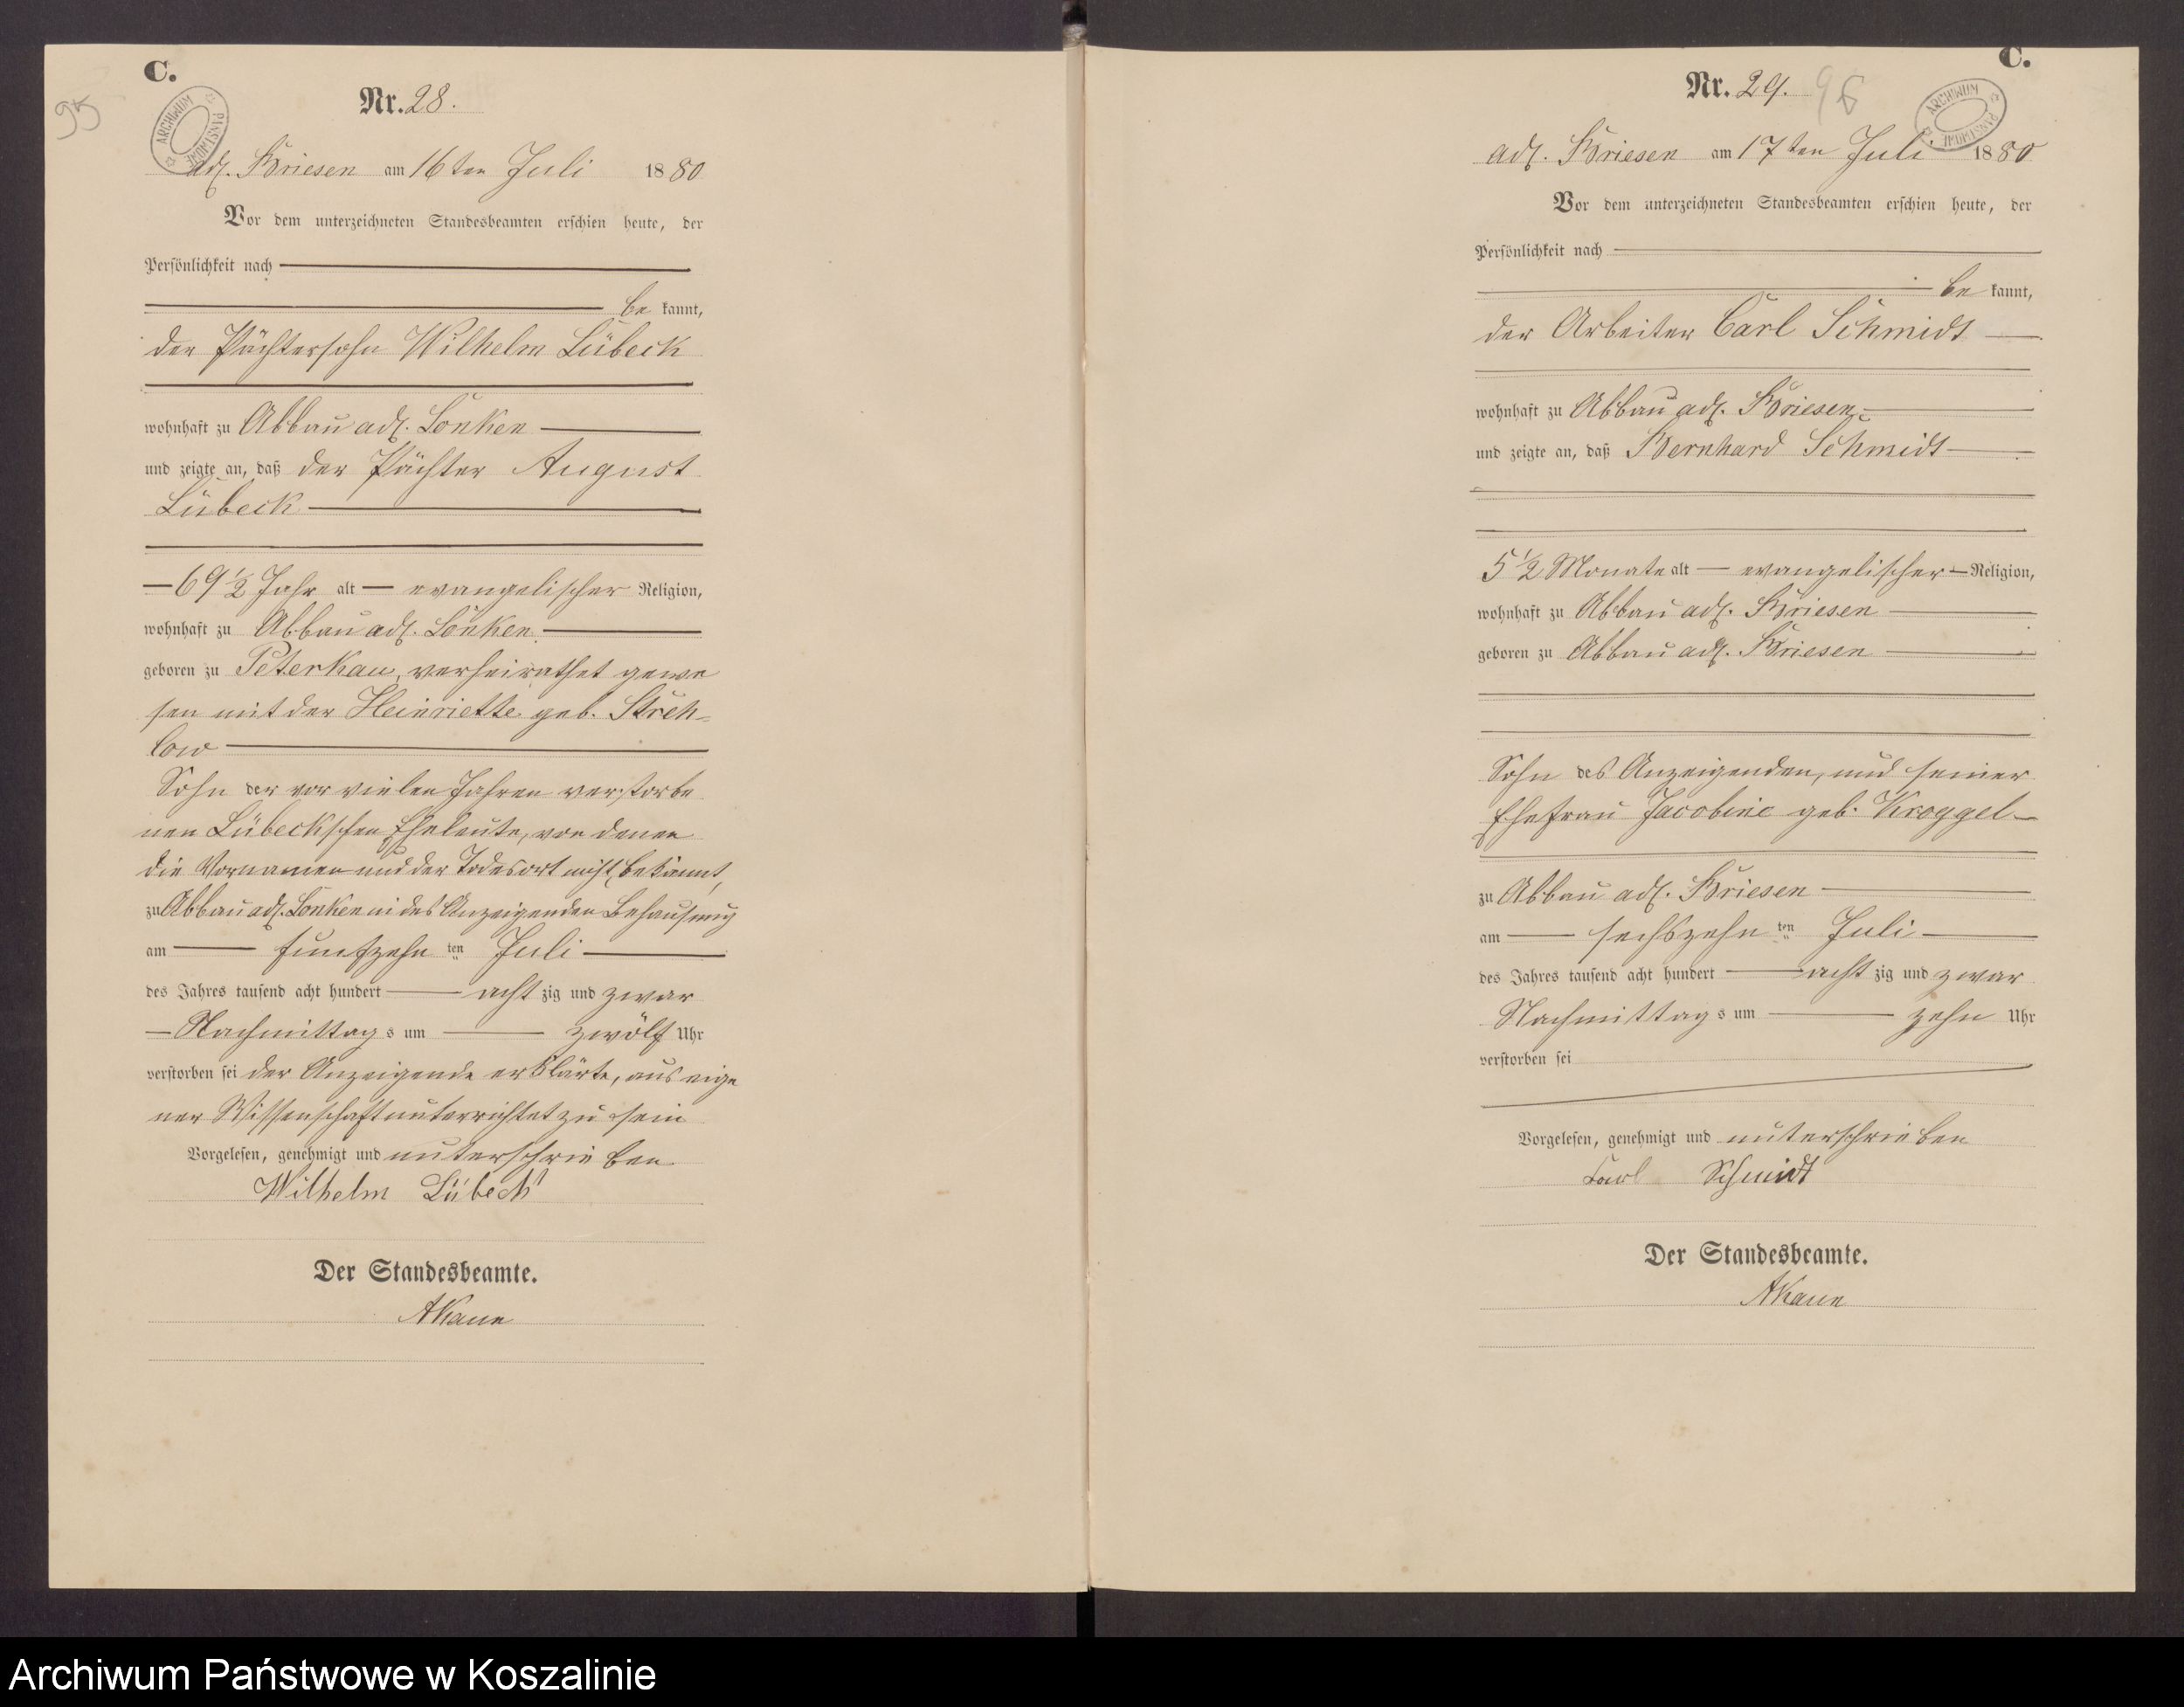 95
C.
ARCHIWUM PAŃSTWOWE
Nr. 28.
adl. Briesen am 16ten Juli 1880
Vor dem unterzeichneten Standesbeamten erschien heute, der
Persönlichkeit nach
be kannt,
der Pächtersohn Wilhelm Lübeck
wohnhaft zu Abbau adl. Lonken
und zeigte an, daß der Pächter August
Lübeck
69 1/2 Jahr alt evangelischer Religion,
wohnhaft zu Abbau adl. Lonken
geboren zu Peterkau, verheirathet gewe
sen mit der Heinriette geb. Streh-
low
Sohn der vor vielen Jahren verstorbe
nen Lübeckschen Eheleute, von denen
die Vornamen und der Todesort nicht bekannt,
zu Abbau adl. Lonken in des Anzeigenden Behausung
am funfzehn ten Juli
des Jahres tausend acht hundert acht zig und zwar
Nachmittag s um zwölf Uhr
verstorben sei der Anzeigende erklärte, aus eige
ner Wissenschaft unterrichtet zu sein
Vorgelesen, genehmigt und unterschrieben
Wilhelm Lübeck
Der Standesbeamte.
AKaun
C.
Nr. 29.
96
ARCHIWUM PAŃSTWOWE
adl. Briesen am 17ten Juli 1880
Vor dem unterzeichneten Standesbeamten erschien heute, der
Persönlichkeit nach
be kannt,
der Arbeiter Carl Schmidt
wohnhaft zu Abbau adl. Briesen
und zeigte an, daß Bernhard Schmidt
5 1/2 Monate alt evangelischer Religion,
wohnhaft zu Abbau adl. Briesen
geboren zu Abbau adl. Briesen
Sohn des Anzeigenden, und seiner
Ehefrau Jacobine geb. Kroggel
zu Abbau adl. Briesen
am sechszehn ten Juli
des Jahres tausend acht hundert acht zig und zwar
Nachmittag s um zehn Uhr
verstorben sei
Vorgelesen, genehmigt und unterschrieben
Carl Schmidt
Der Standesbeamte.
AKaun
Archiwum Państwowe w Koszalinie